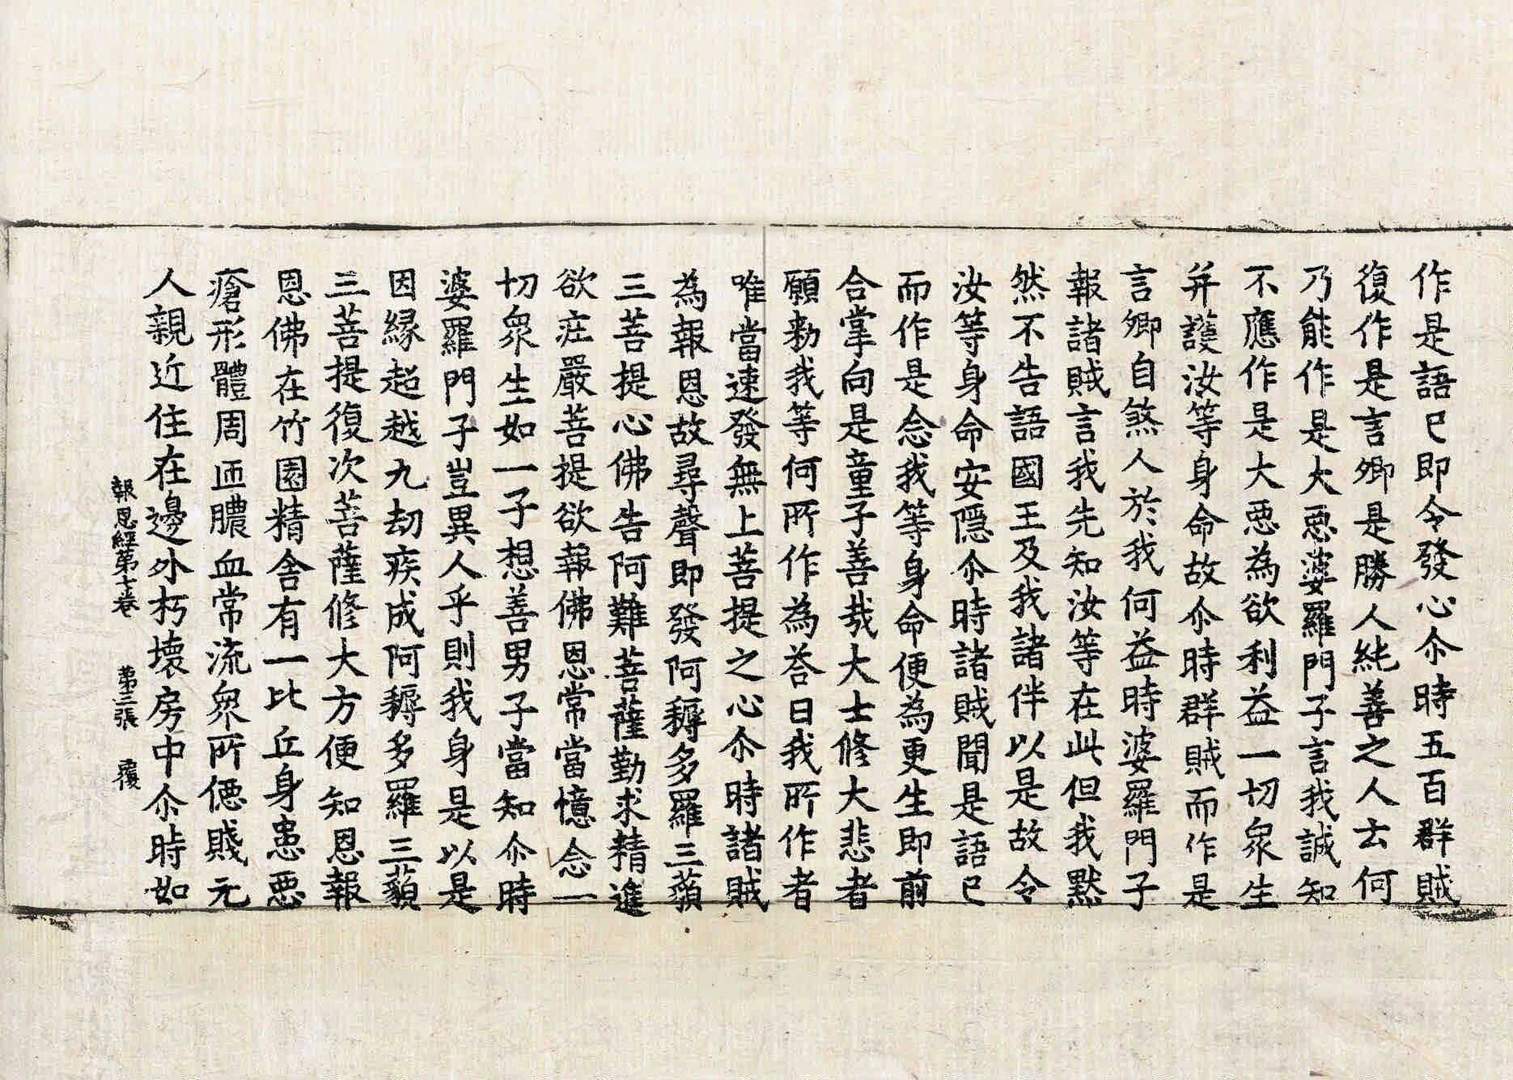 作是語已即令發心尒時五百群賊
復作是言卿是勝人純善之人去何
乃能作是大惡婆羅門子言我誠知
不應作是大惡為欲利益一切衆生
并護汝等身命故尒時群賊而作是
言卿自煞人於我何益時婆羅門子
報諸賊言我先知汝等在此但我默
然不告語國王及我諸伴以是故令
汝等身命安隱尒時諸賊聞是語已
而作是念我等身命便為更生即前
合掌向是童子善㢤大士修大悲者
願勑我等何所作為荅曰我所作者
唯當速發無上菩提之心尒時諸賊
為報恩故尋聲即發阿耨多羅三藐
三菩提心佛告阿難菩薩勤求精進
欲莊嚴菩提欲報佛恩常當憶念一
切衆生如一子想善男子當知尒時
婆羅門子豈異人乎則我身是以是
因緣超越九劫疾成阿耨多羅三藐
三菩提復次菩薩修大方便知恩報
恩佛在竹園精舍有一比丘身患惡
瘡形體周匝膿血常流衆所㥽賤无
人親近住在邊外朽壞房中尒時如
報恩經第七卷 第三張 覆